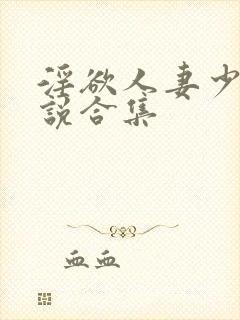 淫欲人妻少
説合集
血血